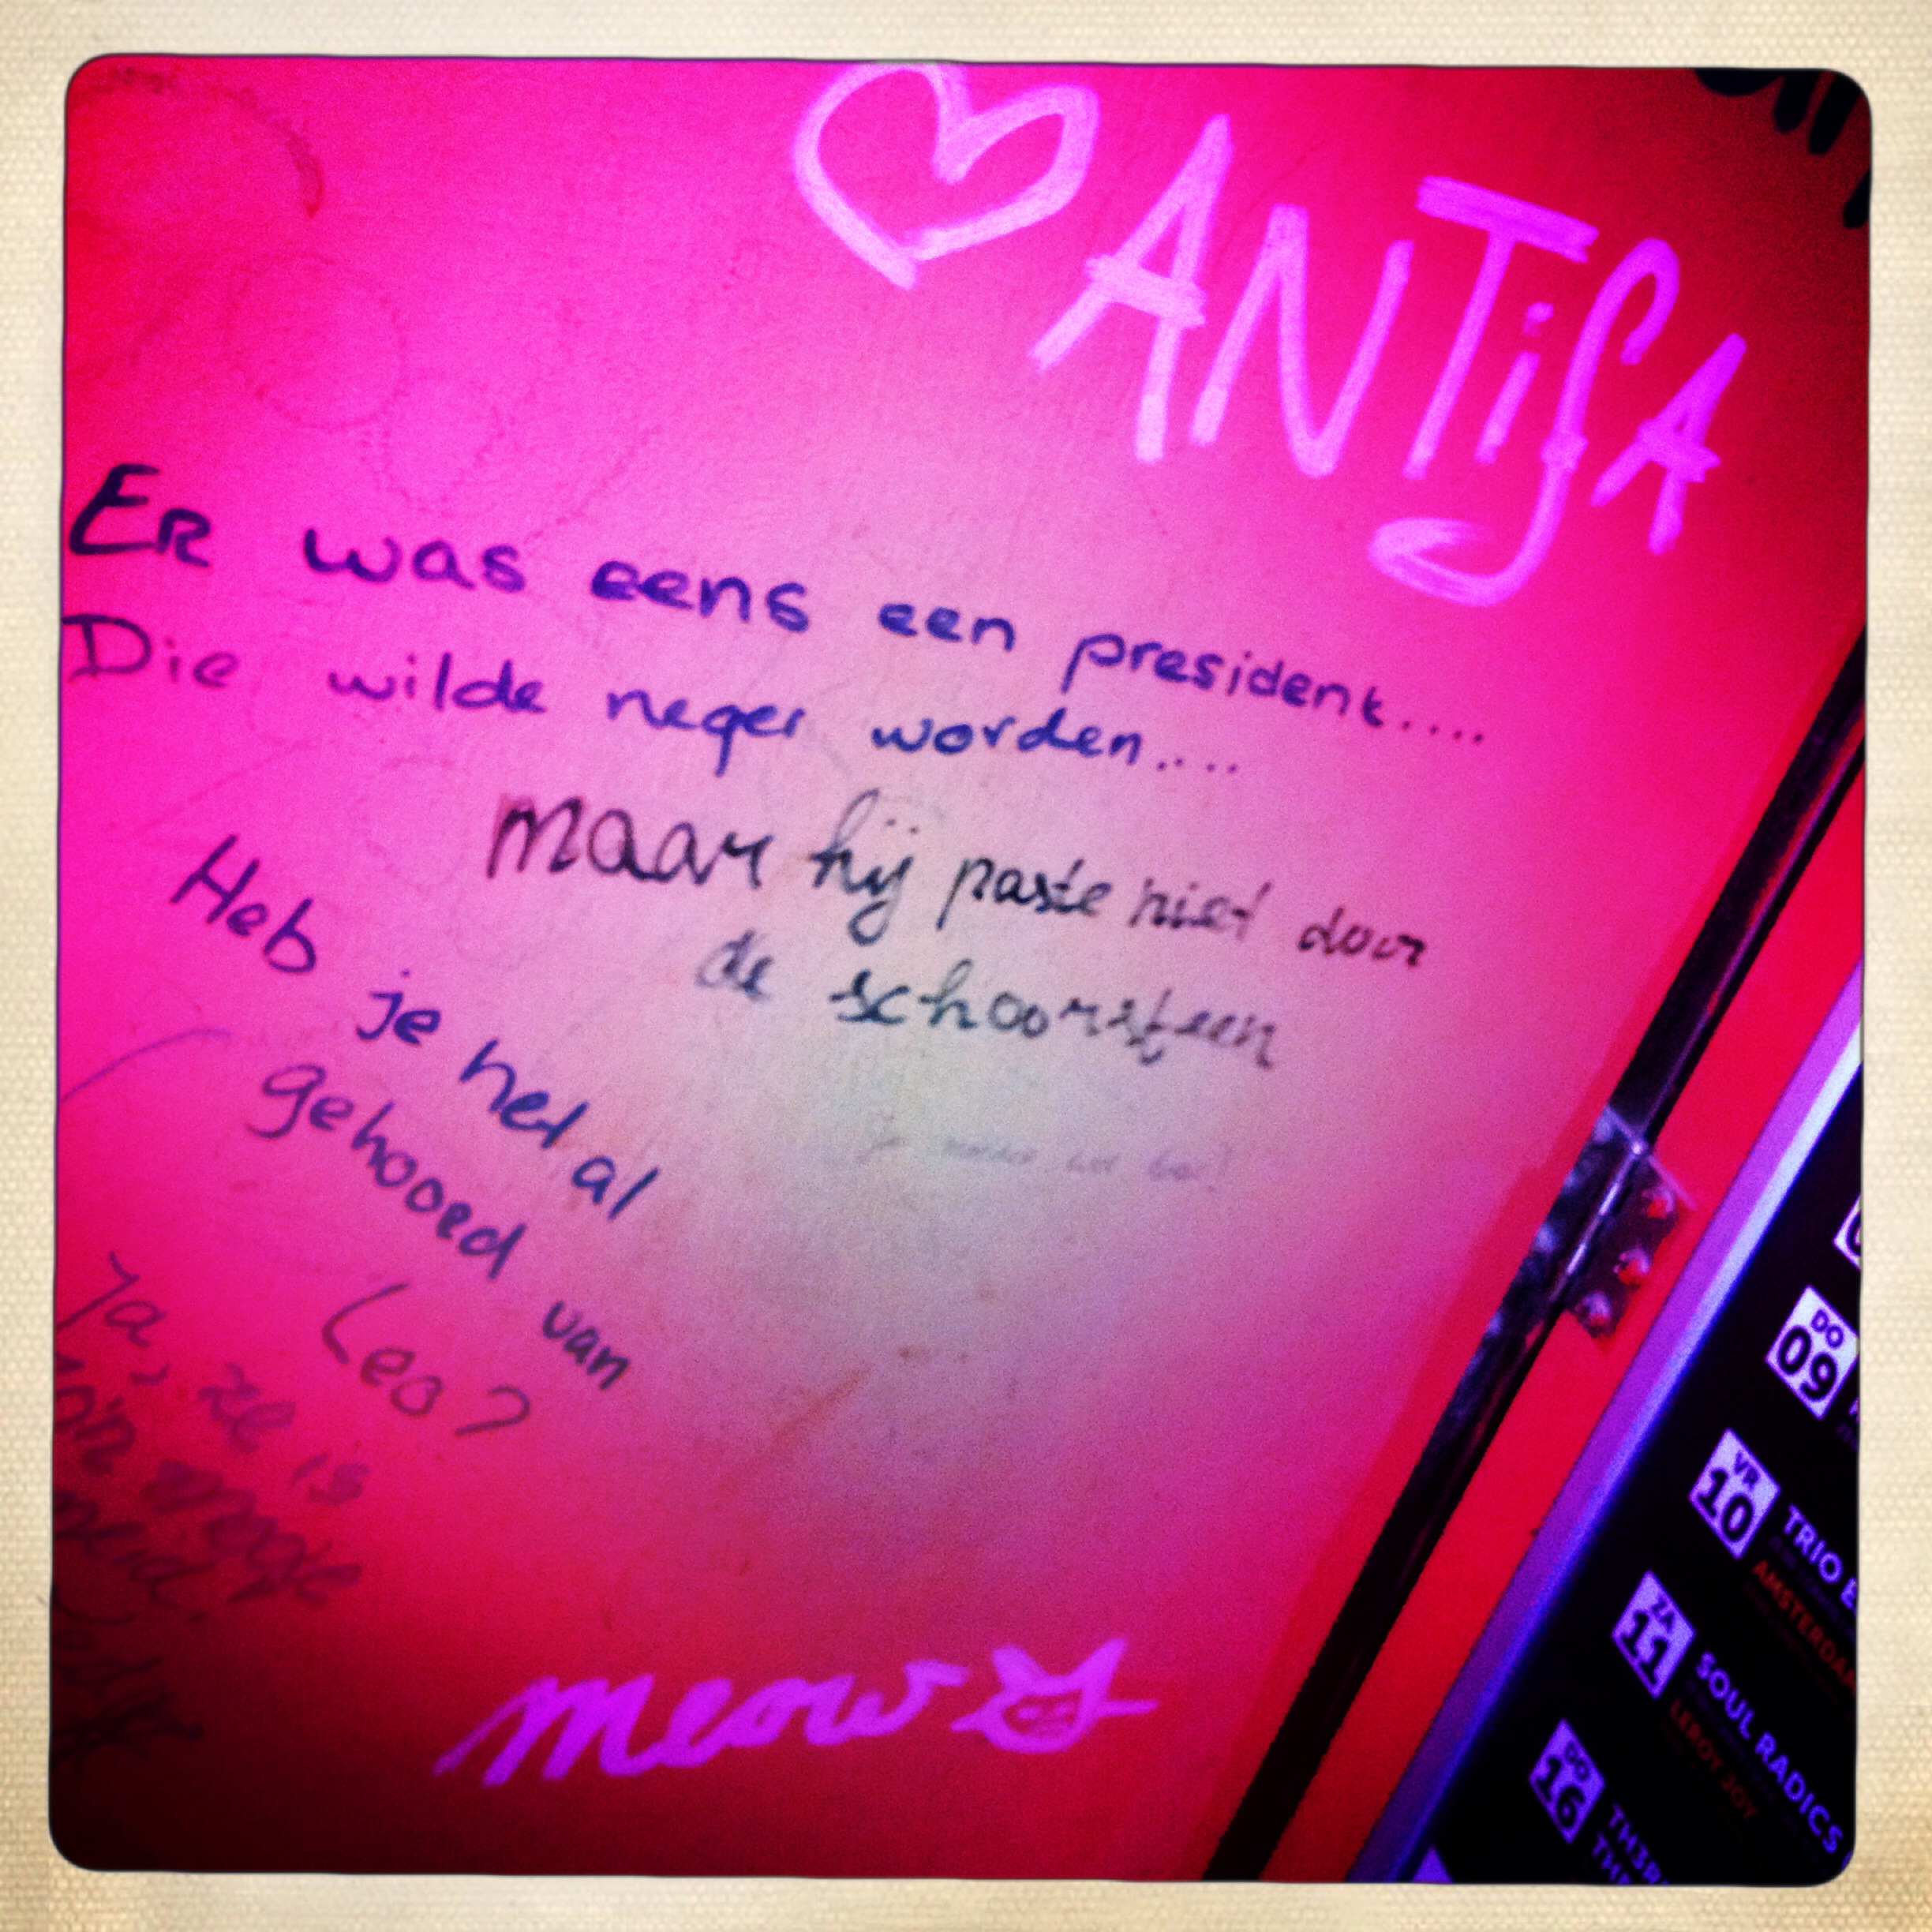 ANTifA
ER was eens een president....
Die wilde neger worden....
maar hij paste niet door
de schoorsteen
Heb je het al
gehoord van
Leo?
Ja, ze is
meow
DO
09
VR
10
TRIO
AMSTERDAM
ZA
11
SOUL RADICS
LEROY JOY
DO
16